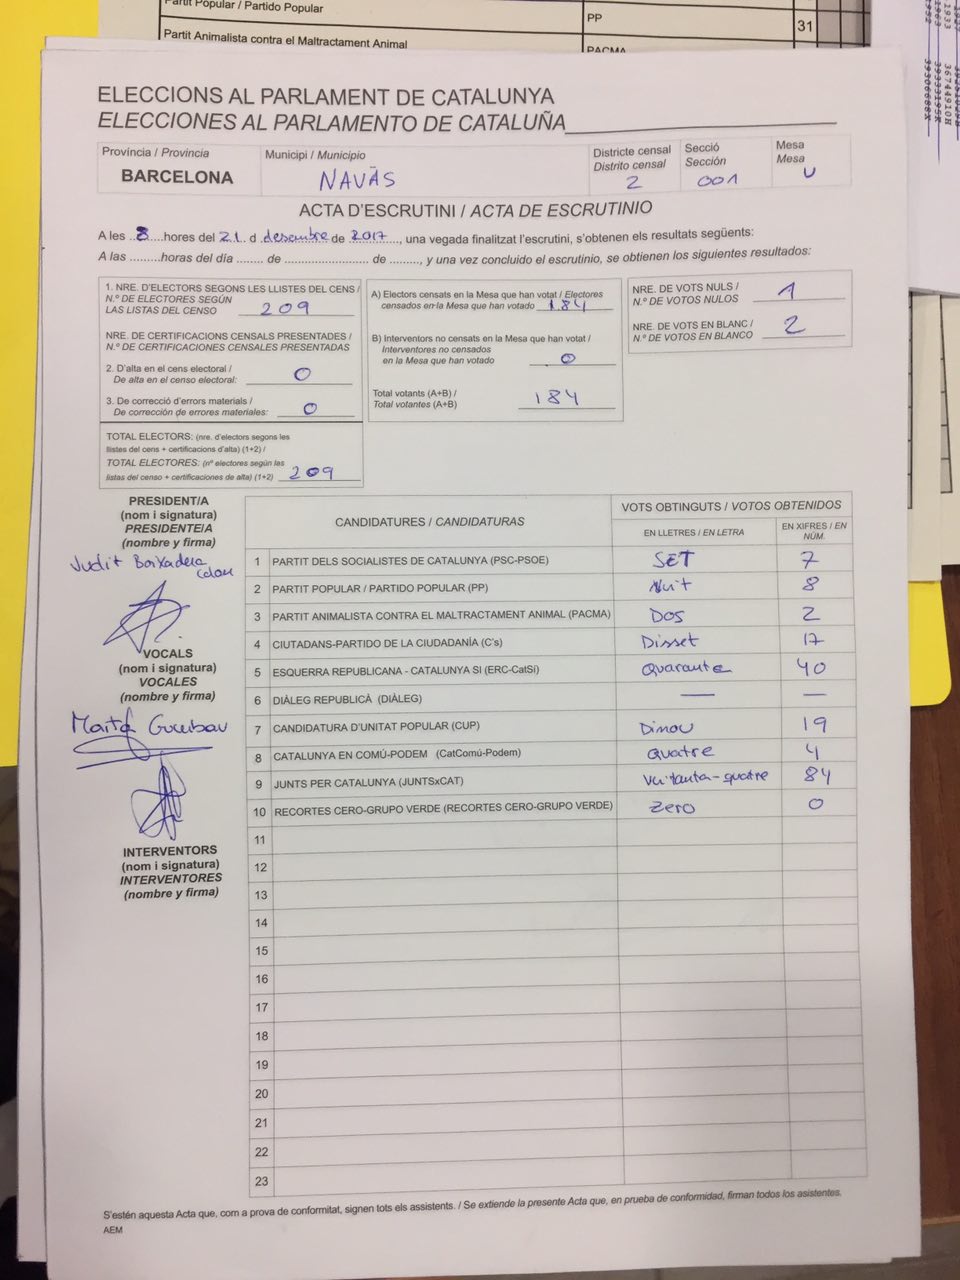 Partit Popular / Partido Popular PP 31
Partit Animalista contra el Maltractament Animal PACMA
ELECCIONS AL PARLAMENT DE CATALUNYA
ELECCIONES AL PARLAMENTO DE CATALUÑA
Província / Provincia
BARCELONA
Municipi / Municipio
NAVÀS
Districte censal
Distrito censal
2
Secció
Sección
001
Mesa
Mesa
U
ACTA D'ESCRUTINI / ACTA DE ESCRUTINIO
A les ..8....hores del 21. d desembre de 2017......, una vegada finalitzat l'escrutini, s'obtenen els resultats següents:
A las .........horas del día ........ de ......................... de ........., y una vez concluido el escrutinio, se obtienen los siguientes resultados:
1. NRE. D'ELECTORS SEGONS LES LLISTES DEL CENS /
N.º DE ELECTORES SEGÚN
LAS LISTAS DEL CENSO 209
NRE. DE CERTIFICACIONS CENSALS PRESENTADES /
N.º DE CERTIFICACIONES CENSALES PRESENTADAS
2. D'alta en el cens electoral /
De alta en el censo electoral: 0
3. De correcció d'errors materials /
De corrección de errores materiales: 0
TOTAL ELECTORS: (nre. d'electors segons les
llistes del cens + certificacions d'alta) (1+2) /
TOTAL ELECTORES: (nº electores según las
listas del censo + certificaciones de alta) (1+2) 209
A) Electors censats en la Mesa que han votat / Electores
censados en la Mesa que han votado 184
B) Interventors no censats en la Mesa que han votat /
Interventores no censados
en la Mesa que han votado 0
Total votants (A+B) /
Total votantes (A+B) 184
NRE. DE VOTS NULS /
N.º DE VOTOS NULOS 1
NRE. DE VOTS EN BLANC /
N.º DE VOTOS EN BLANCO 2
PRESIDENT/A
(nom i signatura)
PRESIDENTE/A
(nombre y firma)
Judit Boixadera
VOCALS
(nom i signatura)
VOCALES
(nombre y firma)
INTERVENTORS
(nom i signatura)
INTERVENTORES
(nombre y firma)
CANDIDATURES / CANDIDATURAS
VOTS OBTINGUTS / VOTOS OBTENIDOS
EN LLETRES / EN LETRA
EN XIFRES / EN NÚM.
1 PARTIT DELS SOCIALISTES DE CATALUNYA (PSC-PSOE) SET 7
2 PARTIT POPULAR / PARTIDO POPULAR (PP) Vuit 8
3 PARTIT ANIMALISTA CONTRA EL MALTRACTAMENT ANIMAL (PACMA) DOS 2
4 CIUTADANS-PARTIDO DE LA CIUDADANÍA (C's) Disset 17
5 ESQUERRA REPUBLICANA - CATALUNYA SÍ (ERC-CatSí) Quaranta 40
6 DIÀLEG REPUBLICÀ (DIÀLEG) — —
7 CANDIDATURA D'UNITAT POPULAR (CUP) Dinou 19
8 CATALUNYA EN COMÚ-PODEM (CatComú-Podem) Quatre 4
9 JUNTS PER CATALUNYA (JUNTSxCAT) Vuitanta-quatre 84
10 RECORTES CERO-GRUPO VERDE (RECORTES CERO-GRUPO VERDE) Zero 0
11
12
13
14
15
16
17
18
19
20
21
22
23
S'estén aquesta Acta que, com a prova de conformitat, signen tots els assistents. / Se extiende la presente Acta que, en prueba de conformidad, firman todos los asistentes.
AEM